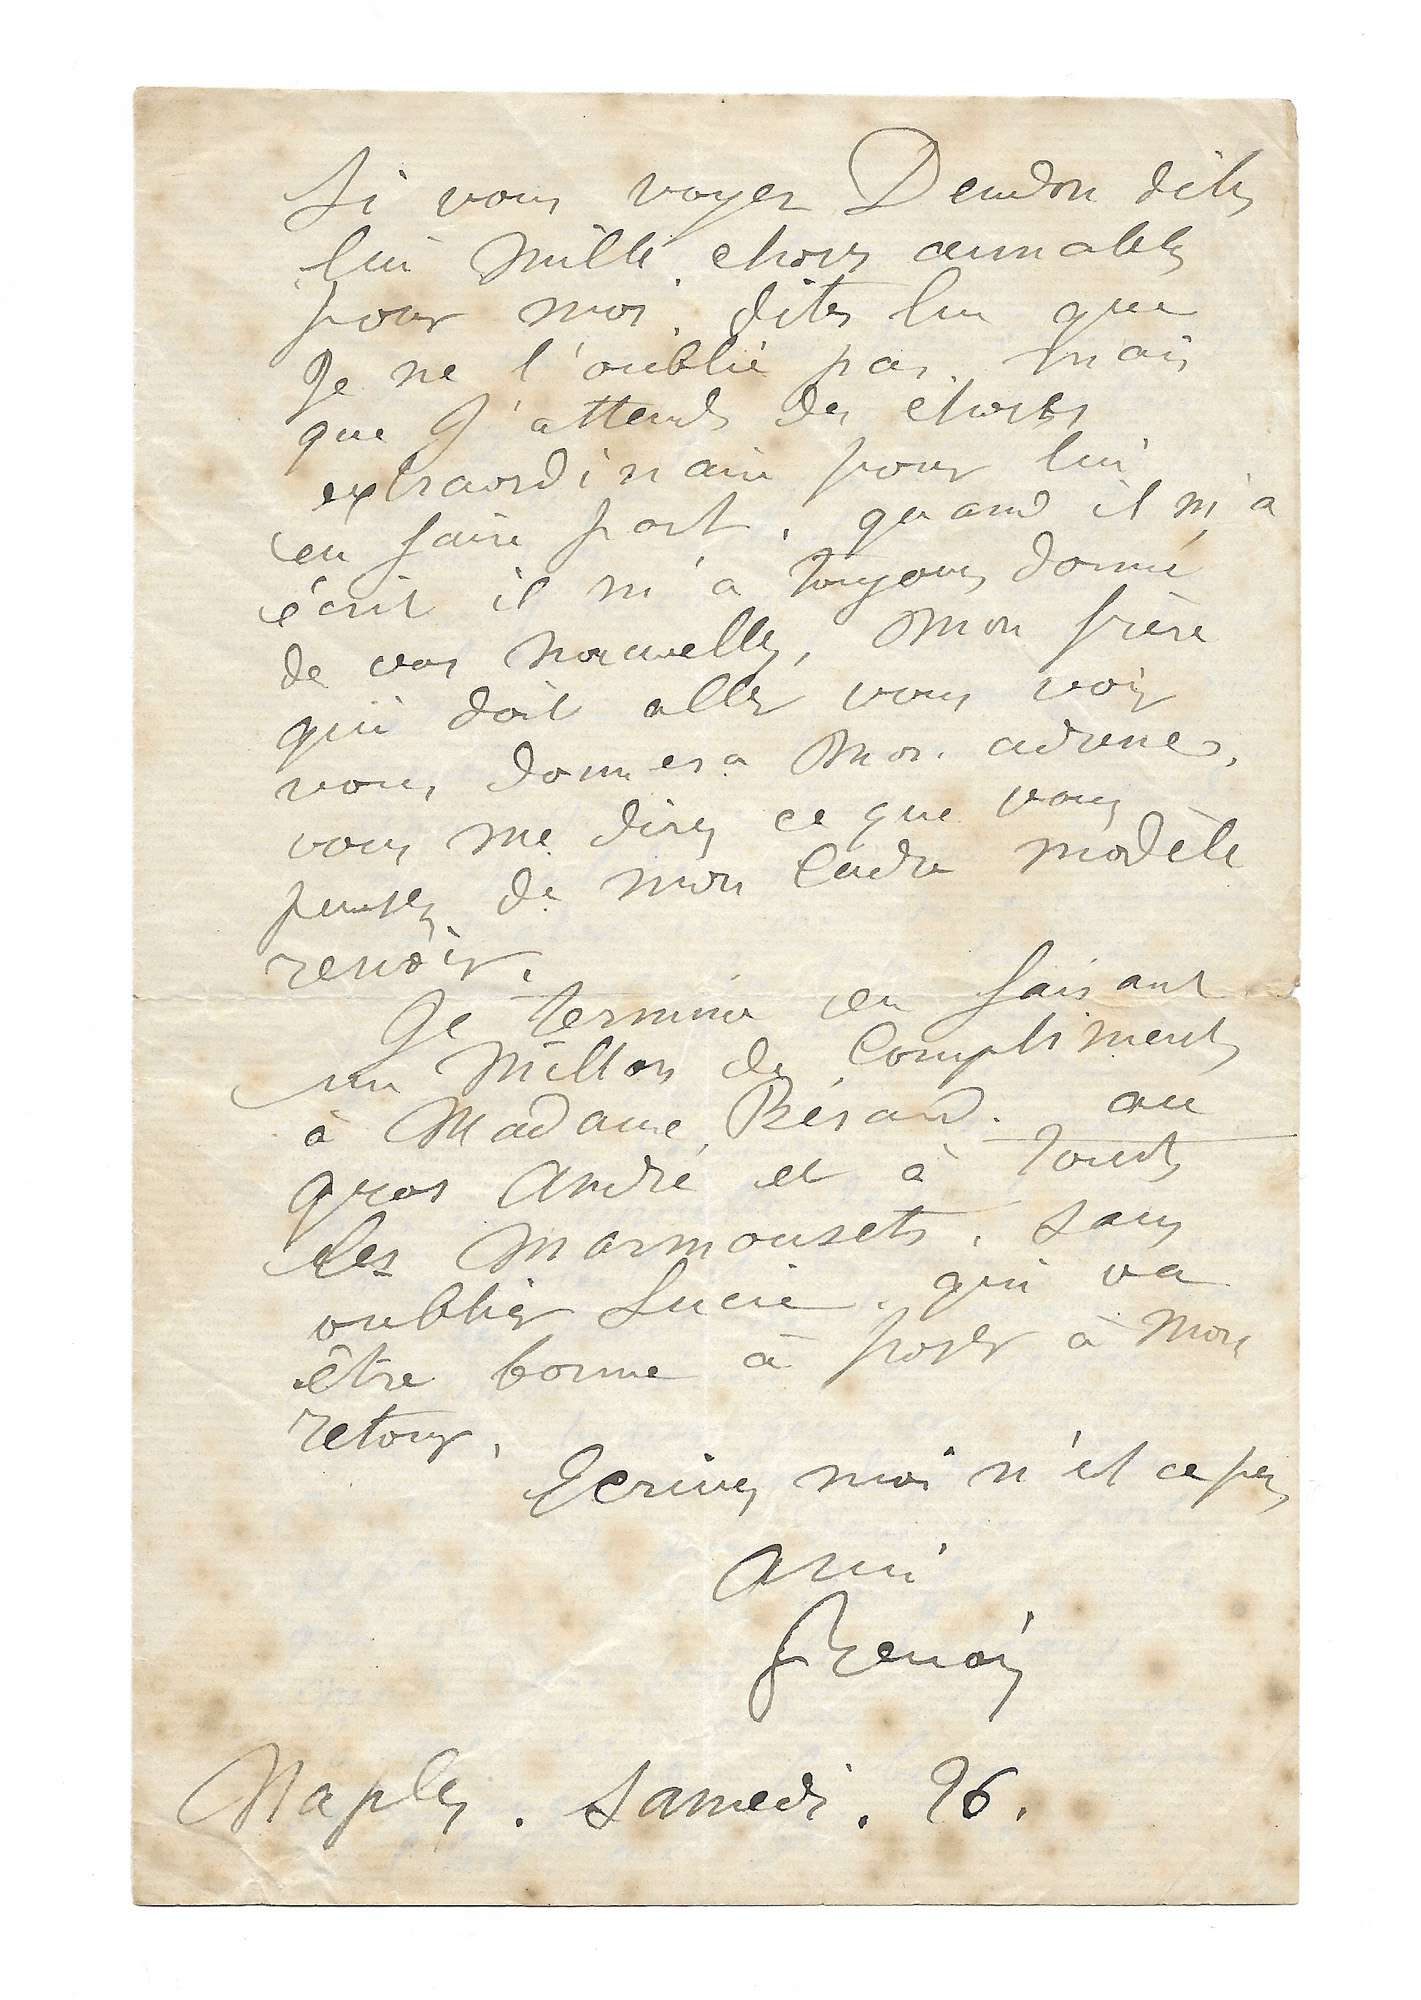 Si vous voyez Deudon dites
lui mille choses aimables
pour moi. dites lui que
je ne l'oublie pas. mais
que j'attends des choses
extraordinaire pour lui
en faire part. quand il m'a
écrit il m'a toujours donné
de vos nouvelles, Mon frère
qui doit aller vous voir
vous donnera mon adresse,
vous me direz ce que vous
pensez de mon Cadre modèle
renoir.
Je termine en faisant
un million de compliments
à Madame Bérard. au
gros André et à touts
les marmousets. sans
oublier Lucie. qui va
être bonne à poser à mon
retour.
Ecrivez moi n'est ce pas
ami
Renoir
Naples. Samedi. 26.